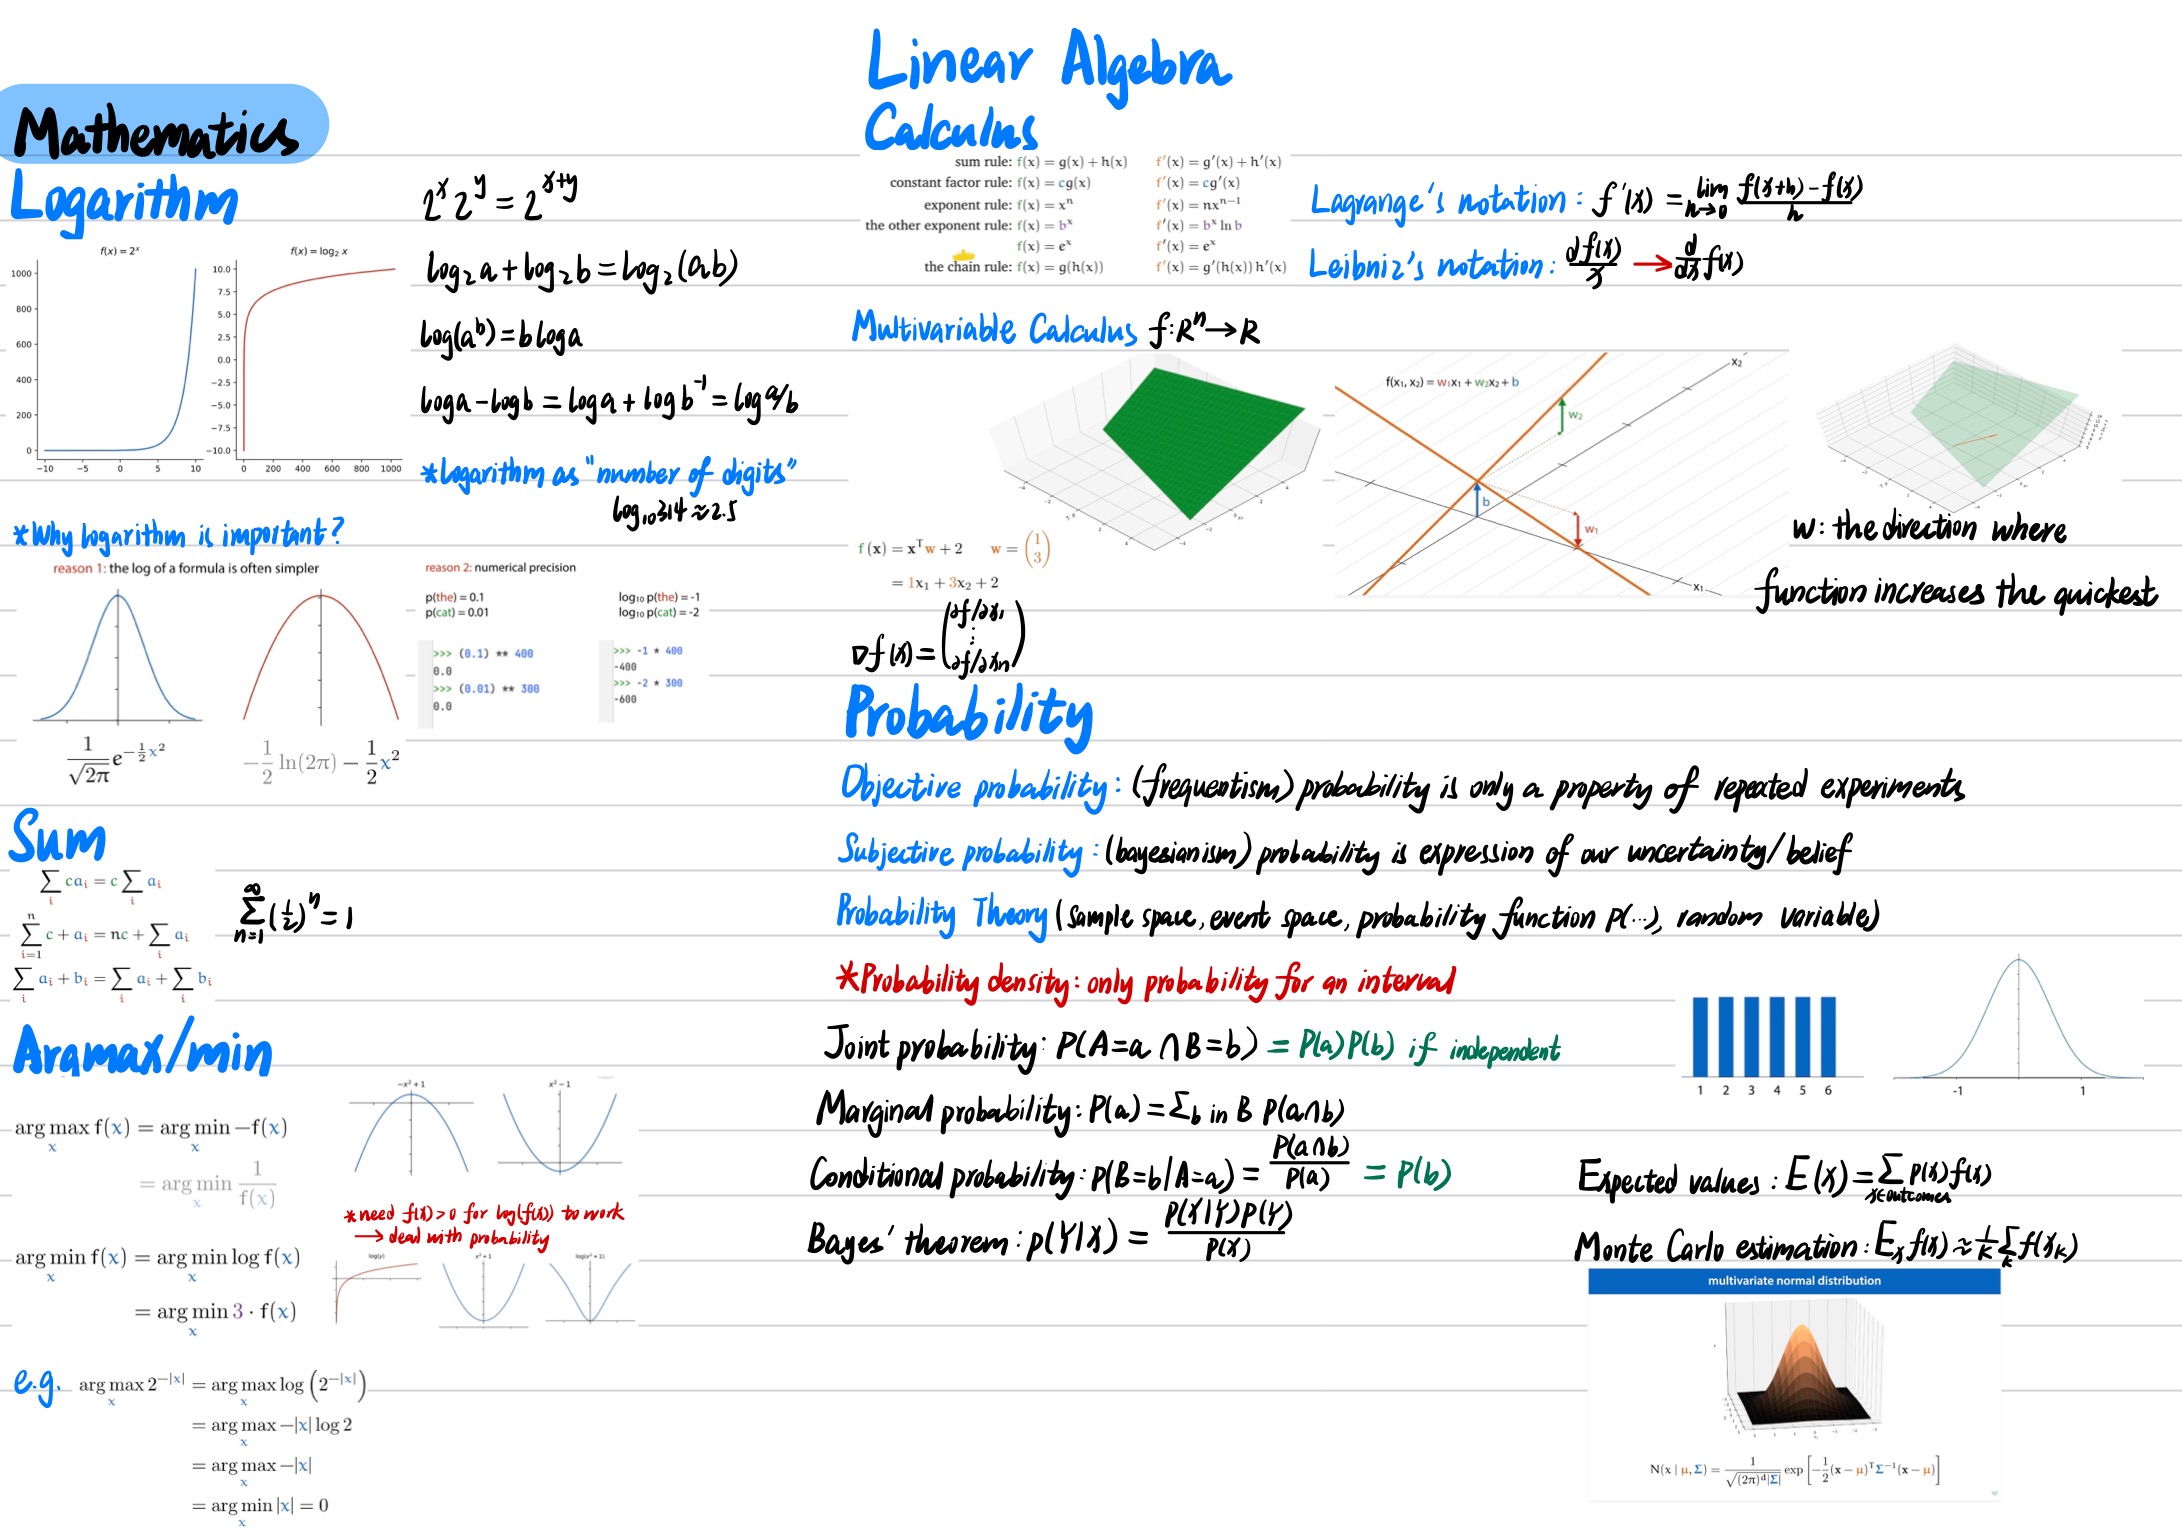 Mathematics
Logarithm
f(x) = 2^x
f(x) = log₂ x
1000
800
600
400
200
0
−10 −5 0 5 10
10.0
7.5
5.0
2.5
0.0
−2.5
−5.0
−7.5
−10.0
0 200 400 600 800 1000
2^x 2^y = 2^{x+y}
log₂a + log₂b = log₂(ab)
log(a^b) = b log a
log a − log b = log a + log b⁻¹ = log a/b
*Logarithm as "number of digits"
log₁₀314 ≈ 2.5
*Why logarithm is important?
reason 1: the log of a formula is often simpler
\frac{1}{\sqrt{2π}} e^{−\frac{1}{2}x²}
−\frac{1}{2} ln(2π) − \frac{1}{2}x²
reason 2: numerical precision
p(the) = 0.1
p(cat) = 0.01
log₁₀ p(the) = -1
log₁₀ p(cat) = -2
>>> (0.1) ** 400
0.0
>>> (0.01) ** 300
0.0
>>> -1 * 400
-400
>>> -2 * 300
-600
Sum
∑_i ca_i = c ∑_i a_i
∑_{i=1}^n c + a_i = nc + ∑_i a_i
∑_i a_i + b_i = ∑_i a_i + ∑_i b_i
∑_{n=1}^∞ (½)^n = 1
Argmax/min
arg max_x f(x) = arg min_x −f(x)
= arg min_x \frac{1}{f(x)}
−x² + 1
x² − 1
*need f(x) > 0 for log(f(x)) to work
→ deal with probability
arg min_x f(x) = arg min_x log f(x)
= arg min_x 3 · f(x)
log(y)
x² + 1
log(x² + 1)
e.g. arg max_x 2^{−|x|} = arg max_x log (2^{−|x|})
= arg max_x −|x| log 2
= arg max_x −|x|
= arg min_x |x| = 0
Linear Algebra
Calculus
sum rule: f(x) = g(x) + h(x) f′(x) = g′(x) + h′(x)
constant factor rule: f(x) = cg(x) f′(x) = cg′(x)
exponent rule: f(x) = x^n f′(x) = nx^{n−1}
the other exponent rule: f(x) = b^x f′(x) = b^x ln b
f(x) = e^x f′(x) = e^x
the chain rule: f(x) = g(h(x)) f′(x) = g′(h(x)) h′(x)
Lagrange's notation: f′(x) = lim_{h→0} \frac{f(x+h)−f(x)}{h}
Leibniz's notation: \frac{df(x)}{x} → \frac{d}{dx} f(x)
Multivariable Calculus f: Rⁿ → R
f(x) = xᵀw + 2 w = (1 3)
= 1x₁ + 3x₂ + 2
f(x₁, x₂) = w₁x₁ + w₂x₂ + b
x₂
w₂
b
w₁
x₁
w: the direction where
function increases the quickest
∇f(x) = (∂f/∂x₁ ⋮ ∂f/∂xn)
Probability
Objective probability: (frequentism) probability is only a property of repeated experiments
Subjective probability: (bayesianism) probability is expression of our uncertainty/belief
Probability Theory (sample space, event space, probability function p(...), random variable)
*Probability density: only probability for an interval
1 2 3 4 5 6
-1 1
Joint probability: P(A=a ∩ B=b) = P(a)P(b) if independent
Marginal probability: P(a) = Σ_b in B P(a∩b)
Conditional probability: P(B=b|A=a) = \frac{P(a∩b)}{P(a)} = P(b)
Bayes' theorem: p(Y|X) = \frac{P(X|Y)P(Y)}{P(X)}
Expected values: E(x) = ∑_{x∈outcomes} p(x)f(x)
Monte Carlo estimation: E_x f(x) ≈ \frac{1}{K} ∑_K f(x_K)
multivariate normal distribution
N(x | μ, Σ) = \frac{1}{\sqrt{(2π)^d|Σ|}} exp [−\frac{1}{2}(x − μ)ᵀΣ⁻¹(x − μ)]